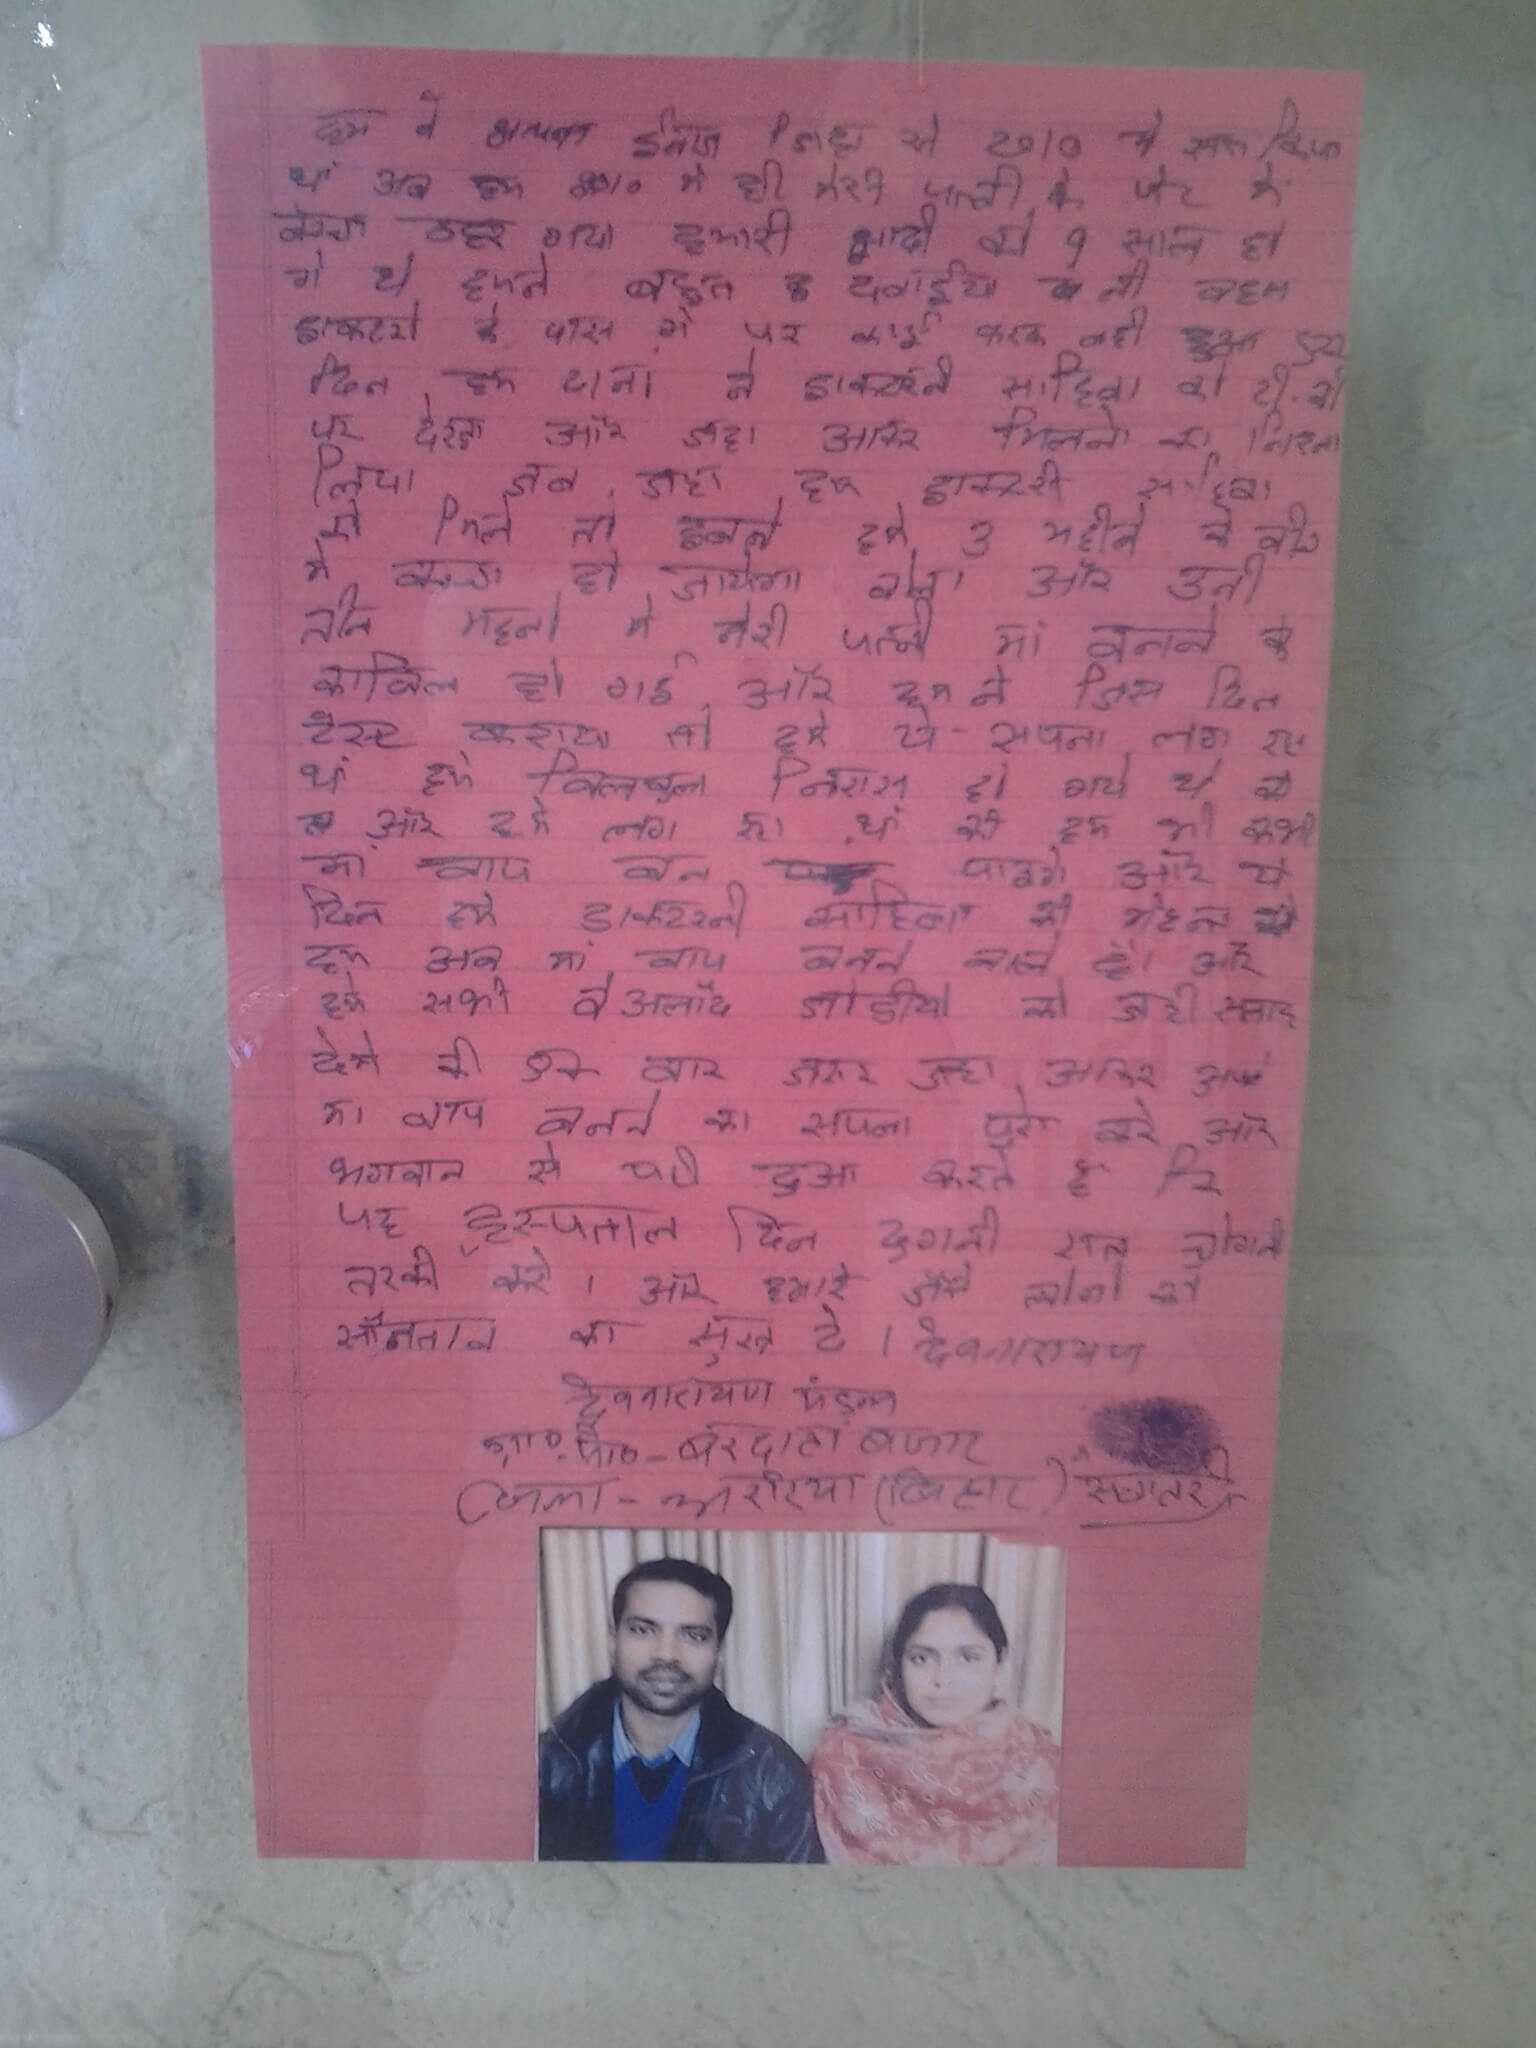 हम ने अपना ईलाज यहा से 2010 मे
थां अब हम 2010 मे ही मेरी पत्नी के पेट मे
बच्चा ठहर गया हमारी शादी को 9 साल हो
गे थे हमने बहुत दवाईया ली बहुत
डाकटरो के पास गे पर कोई फरक नही हुआ
दिन हम दोनो ने डाक्टरनी साहिबा को टी.वी
पर देखा और जहा आकर मिलने का
लिया जब जहा हम डाक्टरनी साहिबा
से मिले तो हमे 3 महीने के बीच
मे बच्चा हो जायेगा बोला और उनी
तीन महनो मे मेरी पत्नी मां बनाने के
काबिल हो गई और हम ने जिस दिन
टैस्ट कराया तो हमे ये सपना लग रहा
थां हमे बिलकुल निरास हो गये थे
और हमे लग रहा थां की हम भी कभी
मां बाप बन पायगे और ये
दिन हमे डाक्टरनी साहिबा की मेहनत से
हम अब मां बाप बनने वाले है। और
हम सभी बेअलाद जोडीयो को जही सलाह
देगे की एक बार जरुर जहा आकर अपने
मा बाप बनने का सपना पुरा करे और
भगवान से यही दुआ करते है कि
यह हस्पताल दिन दुगनी रात चोगनी
तरकी करे। और हमारे जैसे लोगो को
सौनतान का सुख दे। देवनारायण
देवनारायण मंडल
ग्रा० पो०-बरदाहा बजार
जिला-अररिया (बिहार)